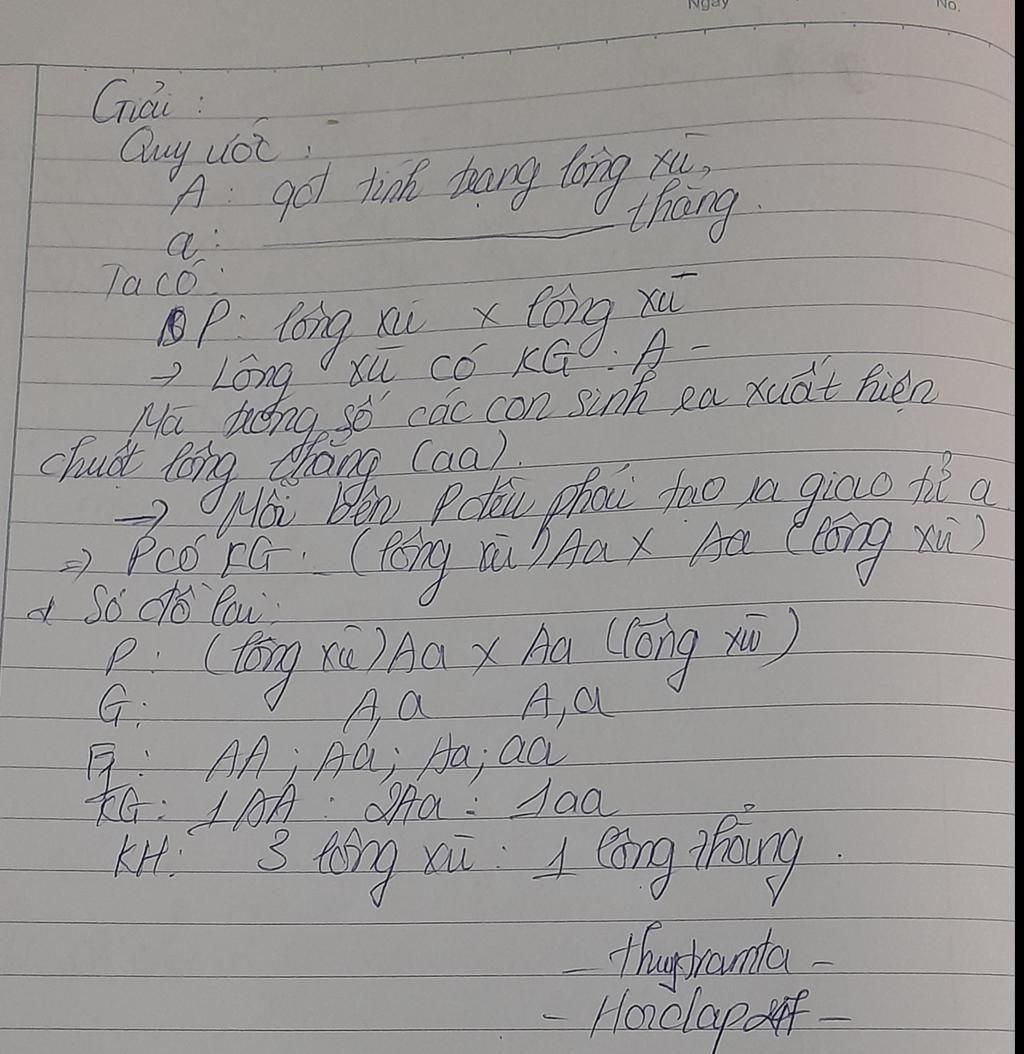 Ngày No.
Giải :
Quy ước :
A : gọi tính trạng lông xù,
a : ———— thẳng.
Ta có :
P : lông xù x lông xù
→ Lông xù có KG : A -
Mà trong số các con sinh ra xuất hiện
chuột lông thẳng (aa).
→ Mỗi bên P đều phải tạo ra giao tử a
=> P có KG : (lông xù) Aa x Aa (lông xù)
Sơ đồ lai :
P : (lông xù) Aa x Aa (lông xù)
G : A, a A, a
F1 : AA ; Aa ; Aa ; aa
KG : 1 AA : 2Aa : 1aa
KH : 3 lông xù : 1 lông thẳng .
- thuytramta -
- Hoiclap247 -